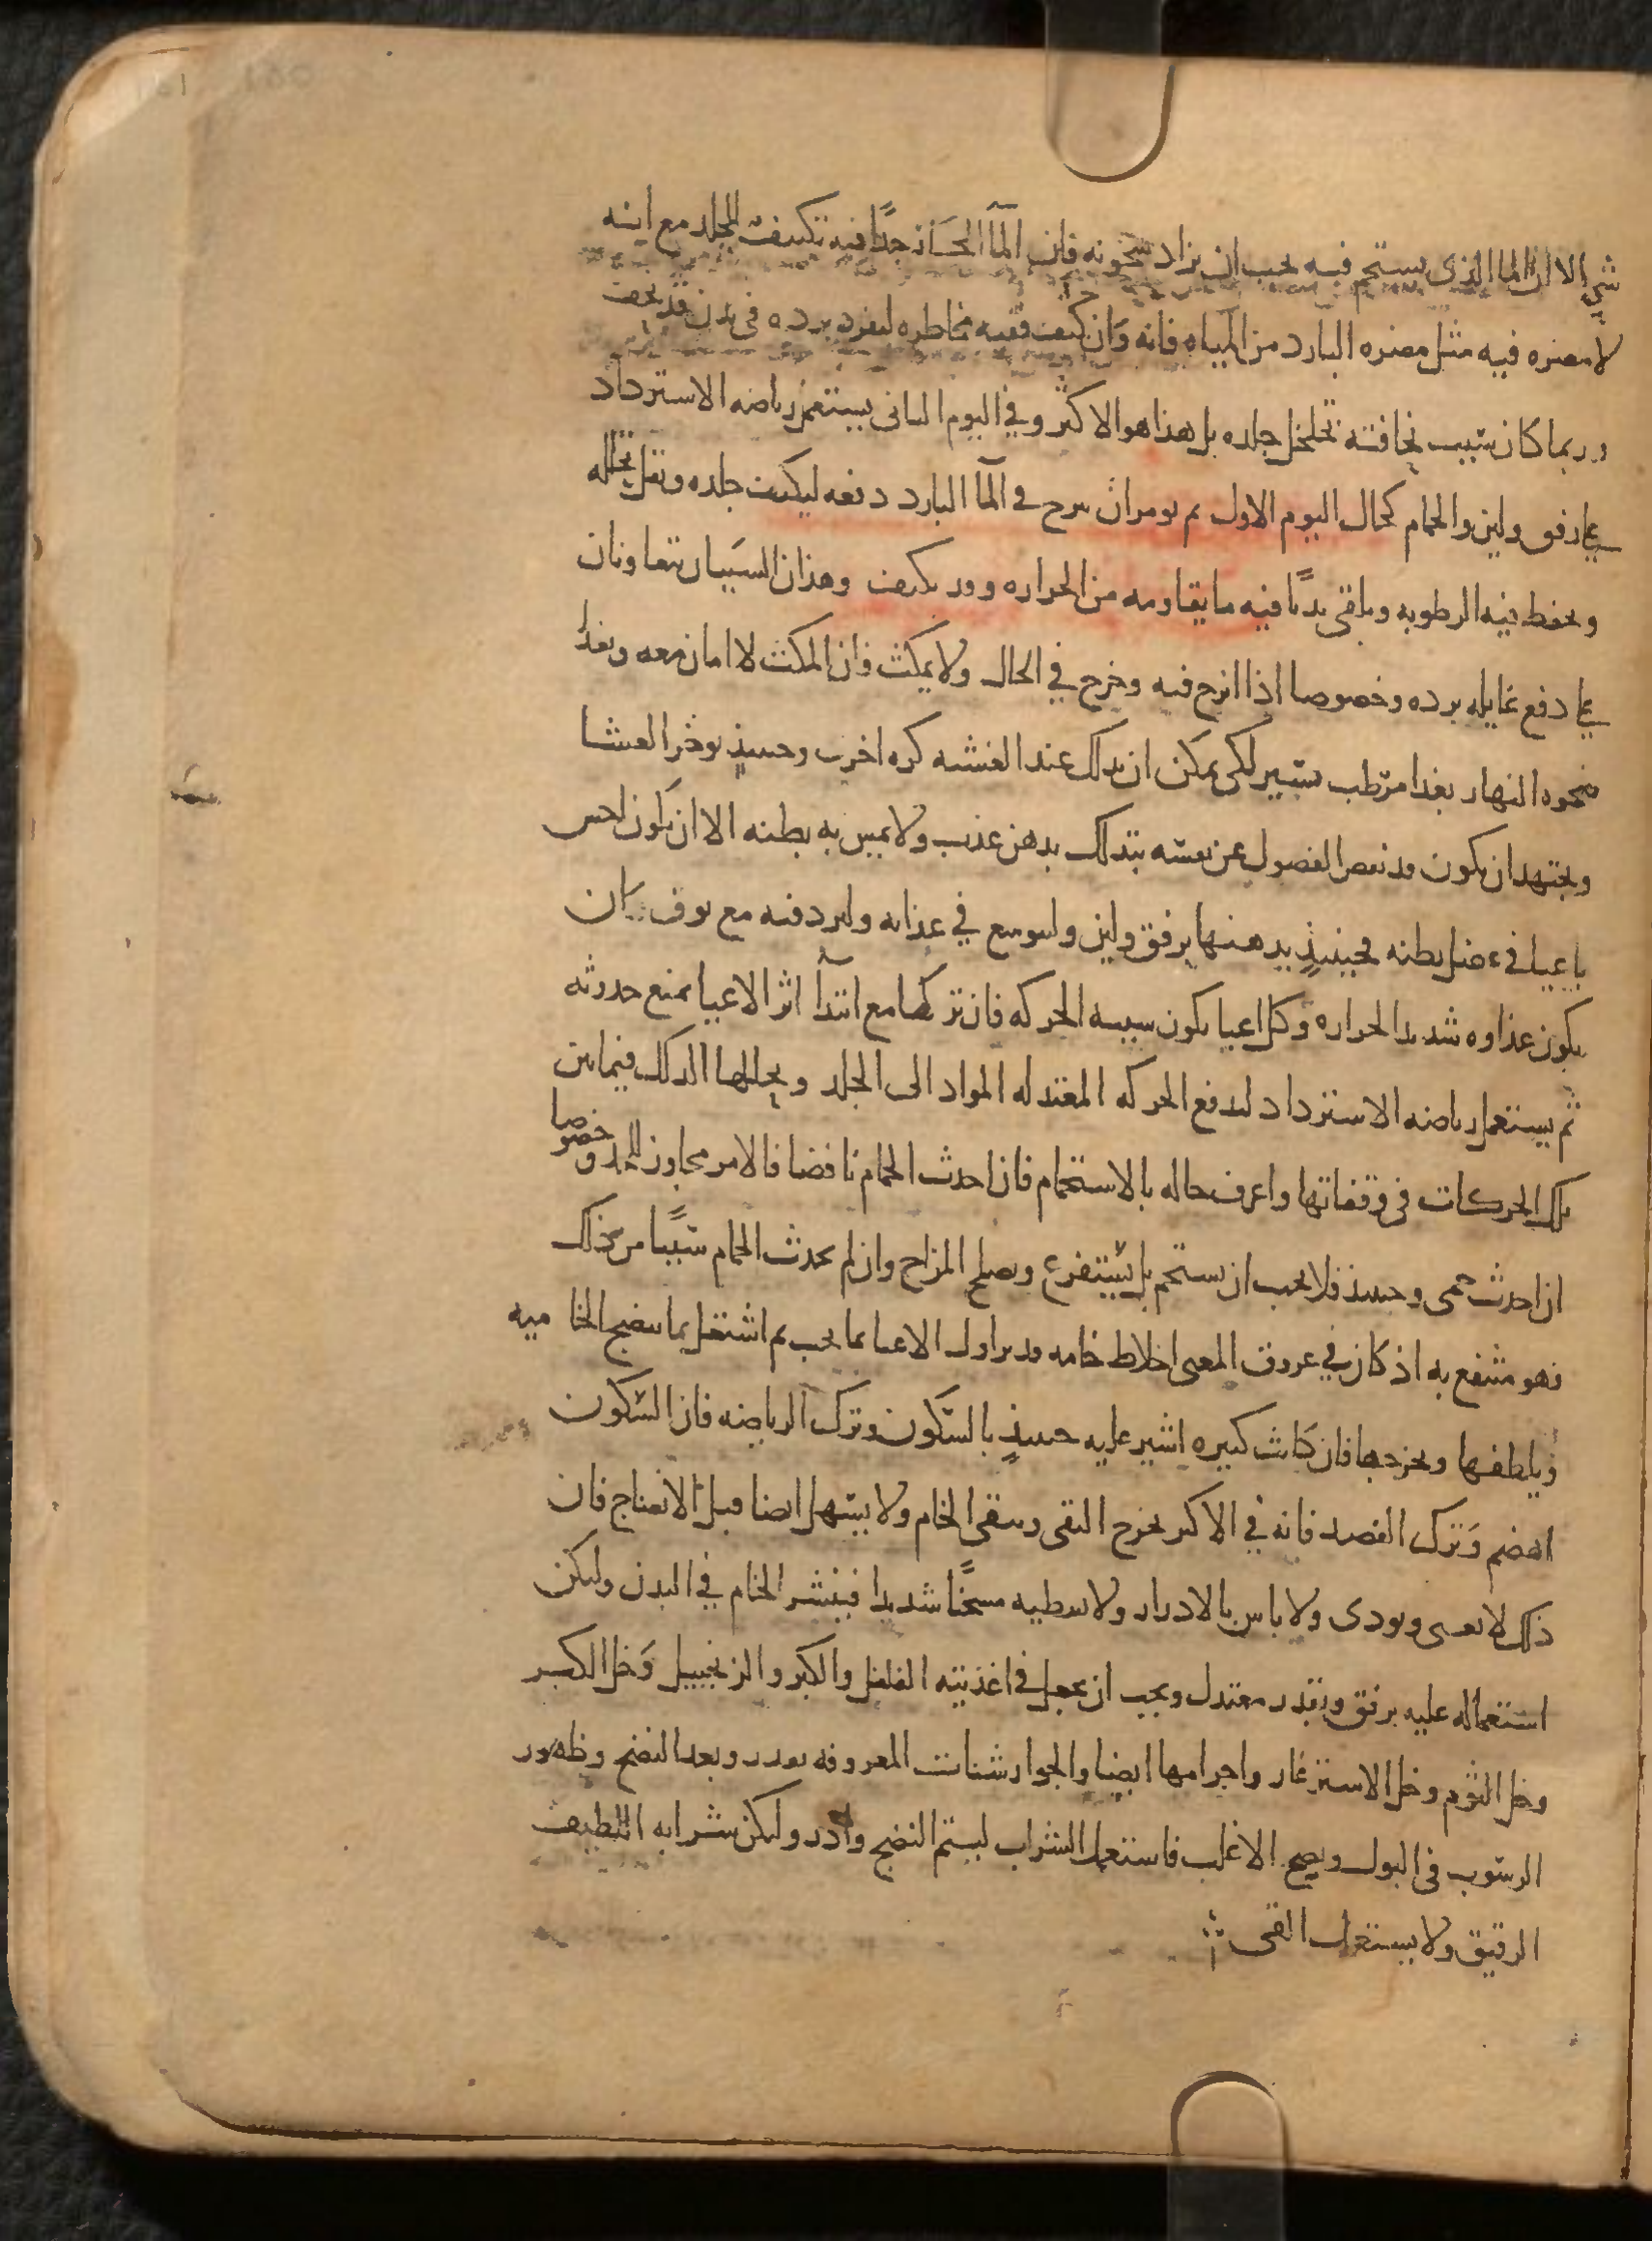 شي الا ان الما الذى يستحم فيه يجب ان يزاد سخونه فان المآ الحار جدًا فيه تكثيف للجلد مع انه
لا مضره فيه مثل مضره البارد من المياه فانه وان كثف ففيه مخاطره لنفوذ برده فى بدن قد نحف
وربما كان سبب نحافته تخلخل جلده بل هذا هو الاكثر وفي اليوم الثانى يستعمل رياضه الاسترداد
على رفق ولين والحمام كحال اليوم الاول ثم يومر ان يزج في المآ البارد دفعه ليكثف جلده ويقل تحلله
ويحفظ فيه الرطوبه ويلقى بدنًا فيه ما يقاومه من الحراره وقد تكثف وهذان السببان يتعاونان
على دفع غايله برده وخصوصا اذا انزج فيه وخرج في الحال ولا يمكث فان المكث لا امان معه ويغذا
ضحوه النهار بغذا مرطب يسير لكى يمكن ان يدلك عند العشيه كره اخرى وحينيذٍ يوخر العشا
ويجتهد ان يكون قد نفض الفضول عن نفسه بتدلك بدهن عذب ولا يمس به بطنه الا ان يكون احس
باعيا في عضل بطنه فحينيذٍ يدهنها برفق ولين وليوسع في غذايه وليزد فيه مع توق ان
يكون غذاوه شديد الحراره وكل اعيا يكون سببه الحركه فان تركها مع ابتدآ اثر الاعيا يمنع حدوثه
ثم يستعمل رياضه الاسترداد لتدفع الحركه المعتدله المواد الى الجلد ويحللها الدلك فيما بين
تلك الحركات فى وقفاتها واعرف حاله بالاستحمام فان احدث الحمام نافضا فالامر مجاوز للحد وخصوصا
ان احدث حمى وحينيذ فلا يجب ان يستحم بل يستفرغ ويصلح المزاج وان لم يحدث الحمام شيًا من ذلك
فهو منتفع به اذ كان في عروق المعيى اخلاط خامه فدبر اولا الاعيا بما يجب ثم اشتغل بما ينضج الخاميه
ويلطفها ويخرجها فان كانت كثيره اشير عليه حينيذٍ بالسكون وترك الرياضه فان السكون
اهضم وترك الفصد فانه في الاكثر يخرج النقى ويبقى الخام ولا يسهل ايضا قبل الانضاج فان
ذلك لا يغنى ويوذى ولا باس بالادرار ولا تعطيه مسخنًا شديدا فينشر الخام في البدن وليكن
استعماله عليه برفق وبقدر معتدل ويجب ان يجعل فى اغذيته الفلفل والكبر والزنجبيل وخل الكبر
وخل الثوم وخل الاشترغار واجرامها ايضا والجوارشنات المعروفه بقدر وبعد النضج وظهور
الرسوب فى البول ونضج الاغلب فاستعمل الشراب ليتم النضج وادر وليكن شرابه اللطيف
الرقيق ولا يستعمل القى